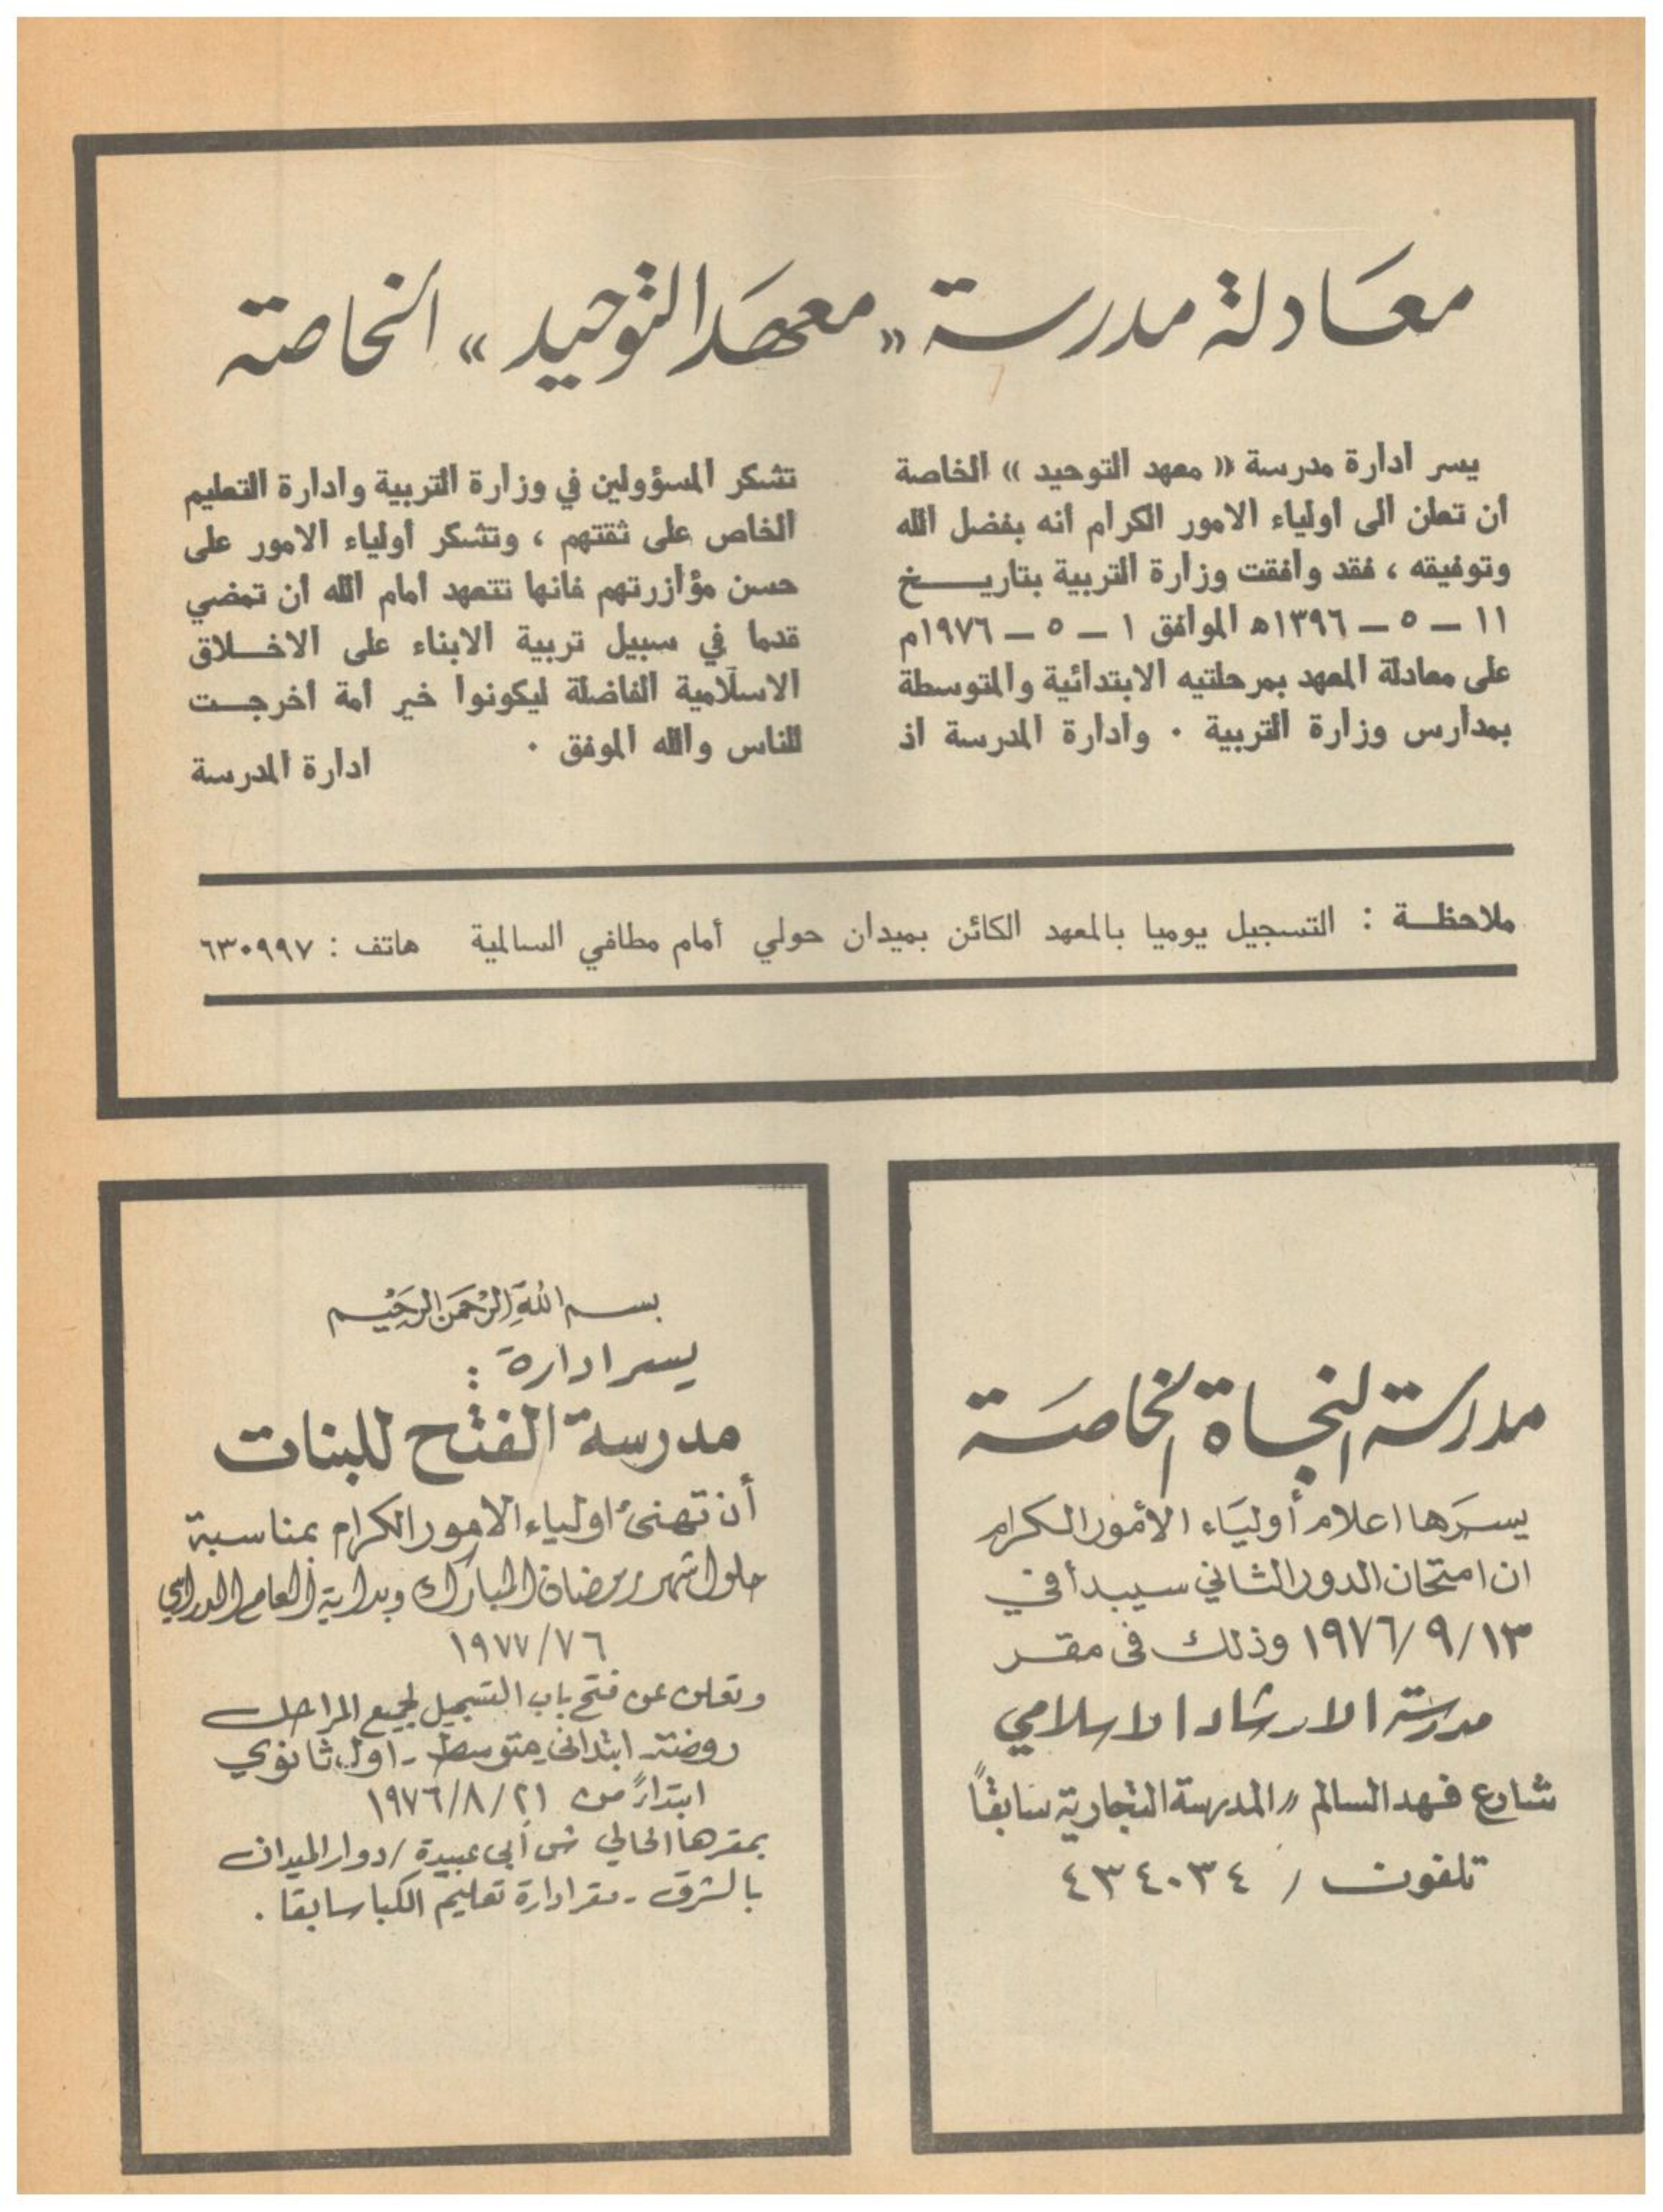 معادلة مدرسة « معهد التوحيد » الخاصة
يسر ادارة مدرسة « معهد التوحيد » الخاصة
أن تعلن الى أولياء الامور الكرام أنه بفضل الله
وتوفيقه ، فقد وافقت وزارة التربية بتاريـــخ
١١ ــ ٥ ــ ١٣٩٦ه الموافق ١ ــ ٥ ــ ١٩٧٦م
على معادلة المعهد بمرحلتيه الابتدائية والمتوسطة
بمدارس وزارة التربية . وادارة المدرسة اذ
تشكر المسؤولين في وزارة التربية وادارة التعليم
الخاص على ثقتهم ، وتشكر أولياء الامور على
حسن مؤازرتهم فانها تتعهد امام الله أن تمضي
قدما في سبيل تربية الابناء على الاخــلاق
الاسلامية الفاضلة ليكونوا خير أمة أخرجــت
للناس والله الموفق .
ادارة المدرسة
ملاحظــة : التسجيل يوميا بالمعهد الكائن بميدان حولي أمام مطافي السالمية هاتف : ٦٣٠٩٩٧
مدرسة النجاة الخاصة
يسرها اعلام أولياء الأمور الكرام
ان امتحان الدور الثاني سيبدأ في
١٩٧٦/٩/١٣ وذلك في مقر
مدرسة الارشاد الاسلامي
شارع فهد السالم « المدرسة التجارية سابقاً
تلفون / ٤٣٤٠٣٤
بسم الله الرحمن الرحيم
يسر ادارة :
مدرسة الفتح للبنات
أن تهنئ اولياء الامور الكرام بمناسبة
حلول شهر رمضان المبارك وبداية العام الدراسي
١٩٧٧/٧٦
وتعلن عن فتح باب التسجيل لجميع المراحل
روضة - ابتدائي - متوسط - اول ثانوي
ابتدارً من ١٩٧٦/٨/٢١
بمقرها الحالي ش أبي عبيدة / دوار الميدان
بالشرق - مقر ادارة تعليم الكبار سابقا .